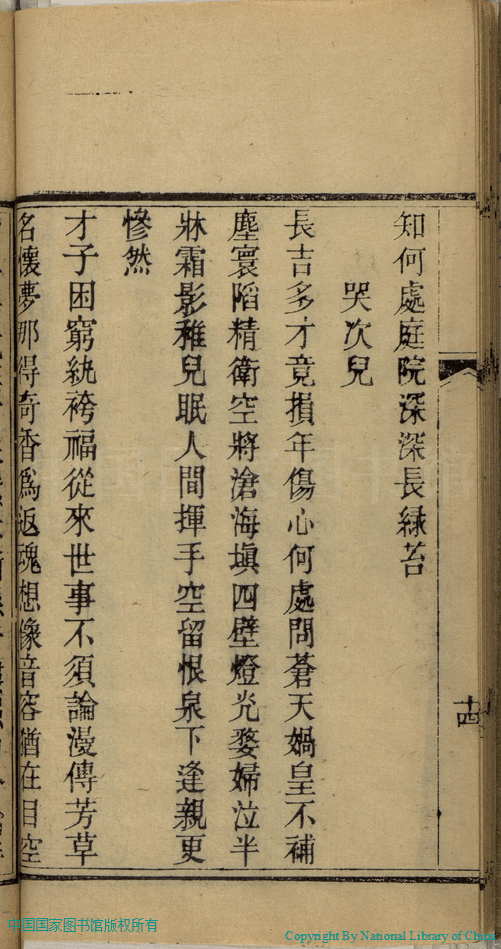 知何處庭院深深長緑苔
哭次兒
長吉多才竟損年傷心何處問蒼天媧皇不補
塵寰陷精衛空將滄海填四壁燈光嫠婦泣半
牀霜影稚兒眠人間揮手空留恨泉下逢親更
慘然
才子困窮紈袴福從來世事不須論漫傳芳草
名懷夢那得奇香爲返魂想像音容猶在目空
十四
中国国家图书馆版权所有
Copyright By National Library of China